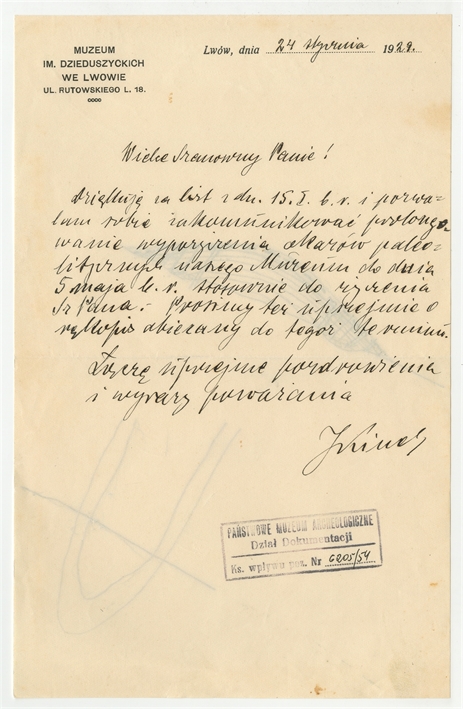 MUZEUM
IM. DZIEDUSZYCKICH
WE LWOWIE
UL. RUTOWSKIEGO L. 18.
Lwów, dnia 24 stycznia 1929.
Wielce Szanowny Panie!
Dziękuję za list z dn. 15.I. b. r. i pozwa-
lam sobie zakomunikować prolongo
wanie wypożyczenia okazów paleo-
litycznych naszego Muzeum do dnia
5 maja b. r. stosownie do życzenia
Sz Pana. - Prosimy też uprzejmie o
rękopis obiecany do tegoż terminu.
Łączę uprzejme pozdrowienia
i wyrazy poważania
PAŃSTWOWE MUZEUM ARCHEOLOGICZNE
Dział Dokumentacji
Ks. wpływu poz. Nr 6205/54